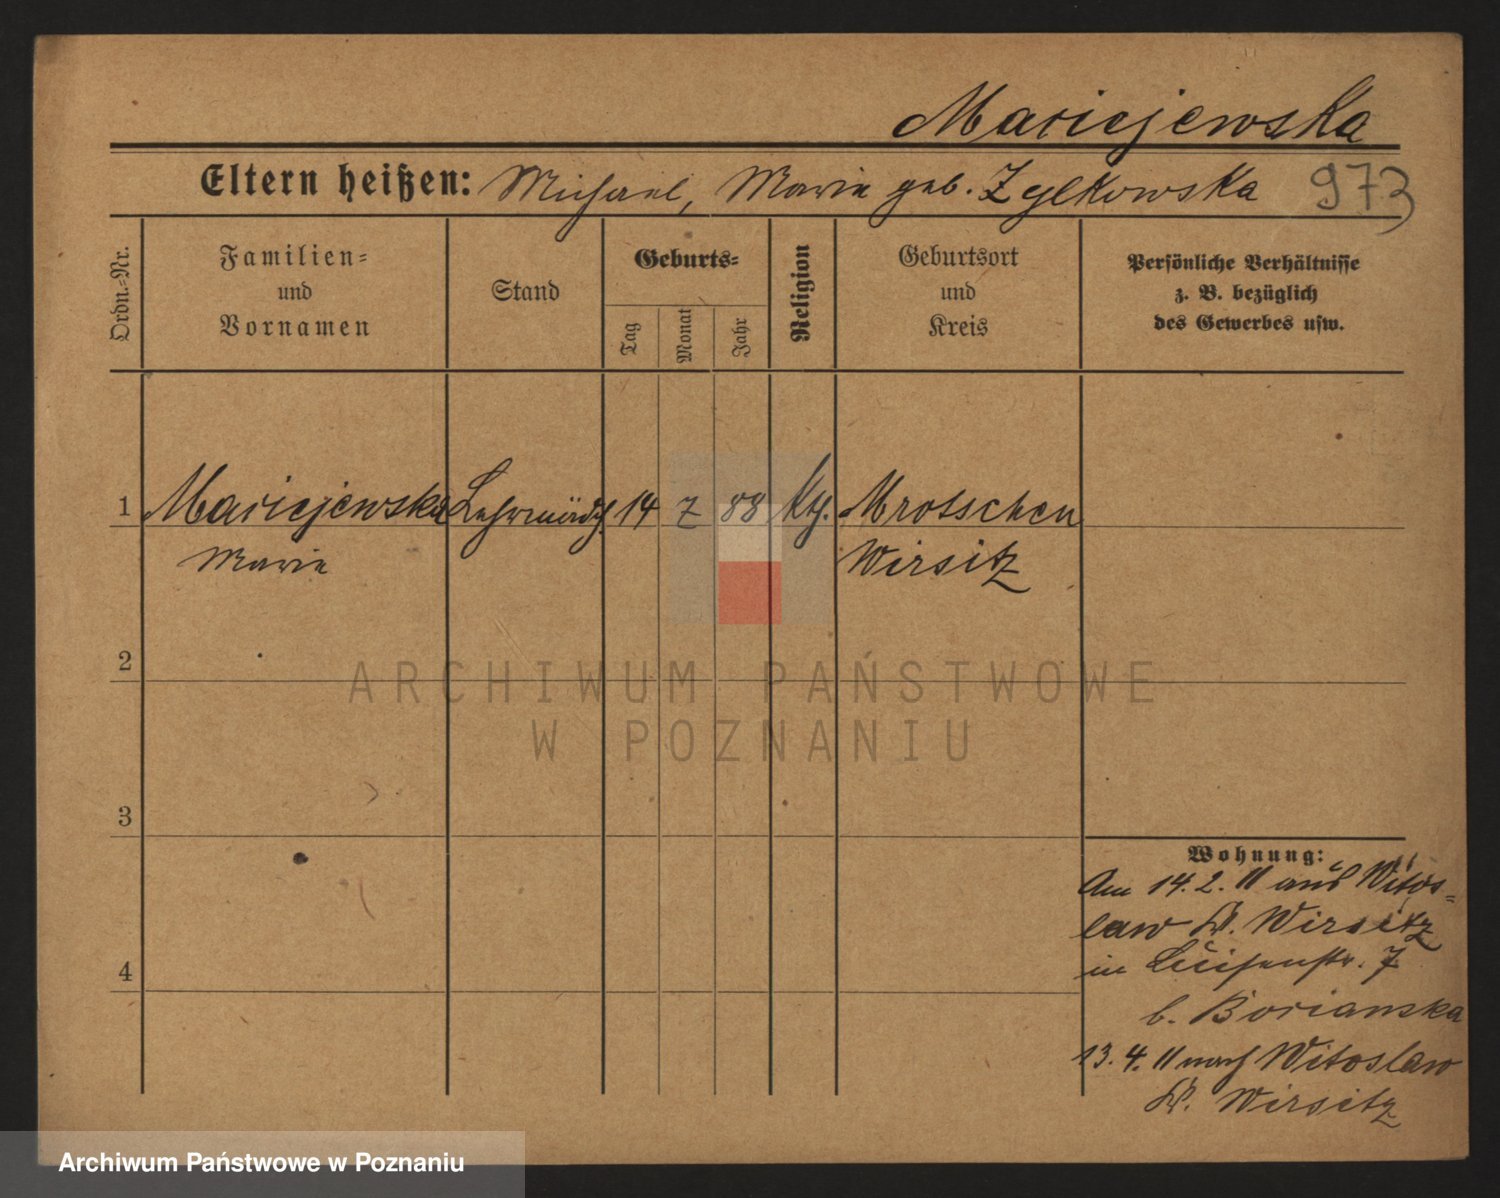 Maciejewska
Eltern heißen: Michael, Marie geb. Zylkowska 973
Ordn.=Nr.
Familien=
und
Vornamen
Stand
Geburts=
Tag
Monat
Jahr
Religion
Geburtsort
und
Kreis
Persönliche Verhältnisse
z. B. bezüglich
des Gewerbes usw.
1 Maciejewska Lehrmädch. 14 7 88 kth. Mrotschen
Marie Wirsitz
2
3
4
Wohnung:
Am 14.2.11 aus Witos=
law Kr. Wirsitz
in Luisenstr. 7
b.
13.4.11 nach Witoslaw
Kr. Wirsitz
ARCHIWUM PAŃSTWOWE
W POZNANIU
Archiwum Państwowe w Poznaniu